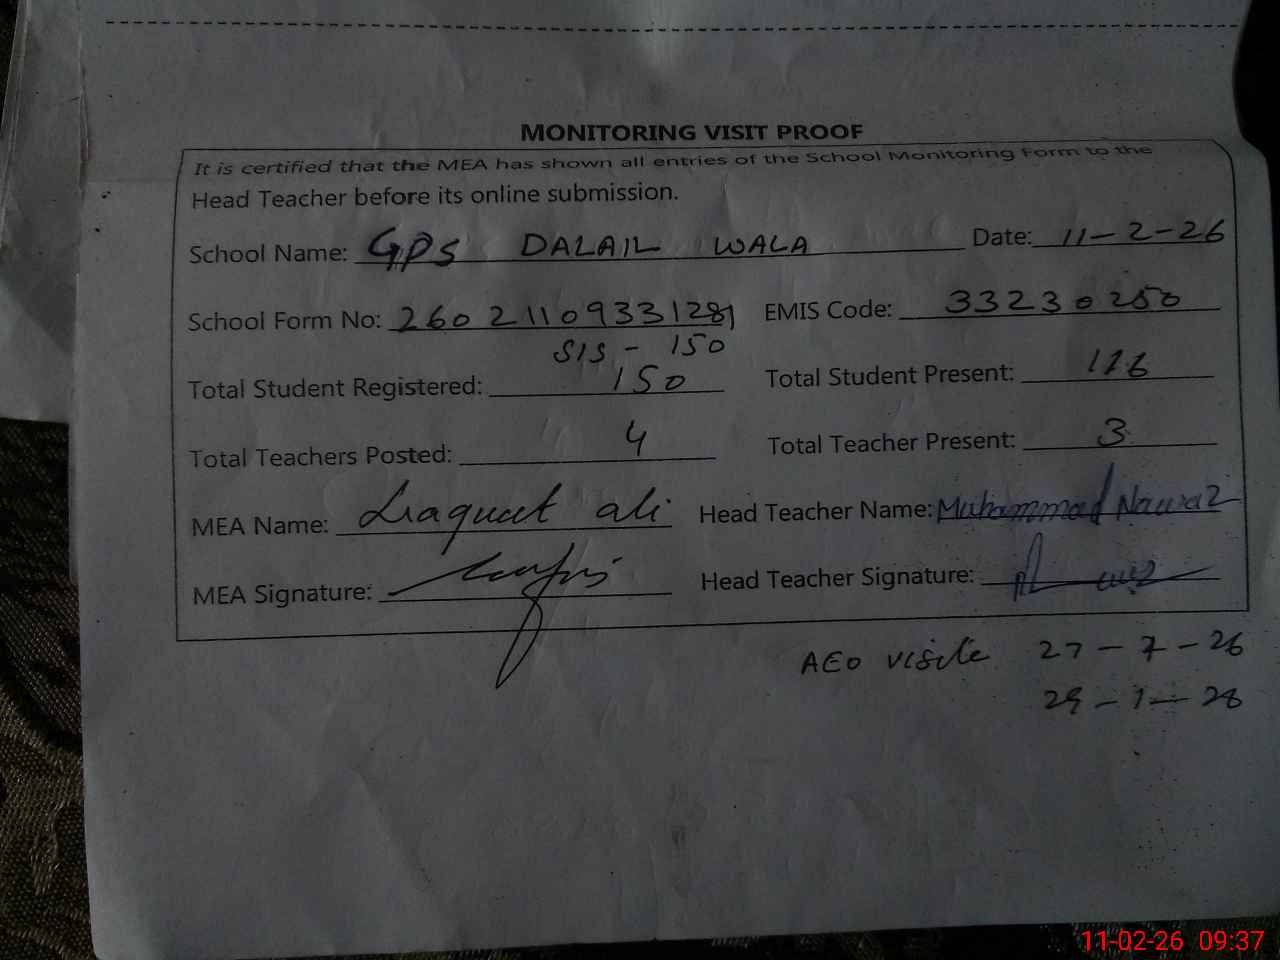 MONITORING VISIT PROOF
It is certified that the MEA has shown all entries of the School Monitoring Form to the
Head Teacher before its online submission.
School Name: GPS DALAIL WALA Date: 11-2-26
School Form No: 26021109331281 EMIS Code: 33230250
SIS - 150
Total Student Registered: 150 Total Student Present: 116
Total Teachers Posted: 4 Total Teacher Present: 3
MEA Name: Liaquat ali Head Teacher Name: Muhammad Nawaz
MEA Signature: Head Teacher Signature:
AEO visite 27-7-26
29-1-28
11-02-26 09:37